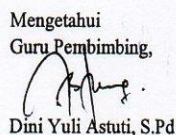 Mengetahui
Guru Pembimbing,
Dini Yuli Astuti, S.Pd